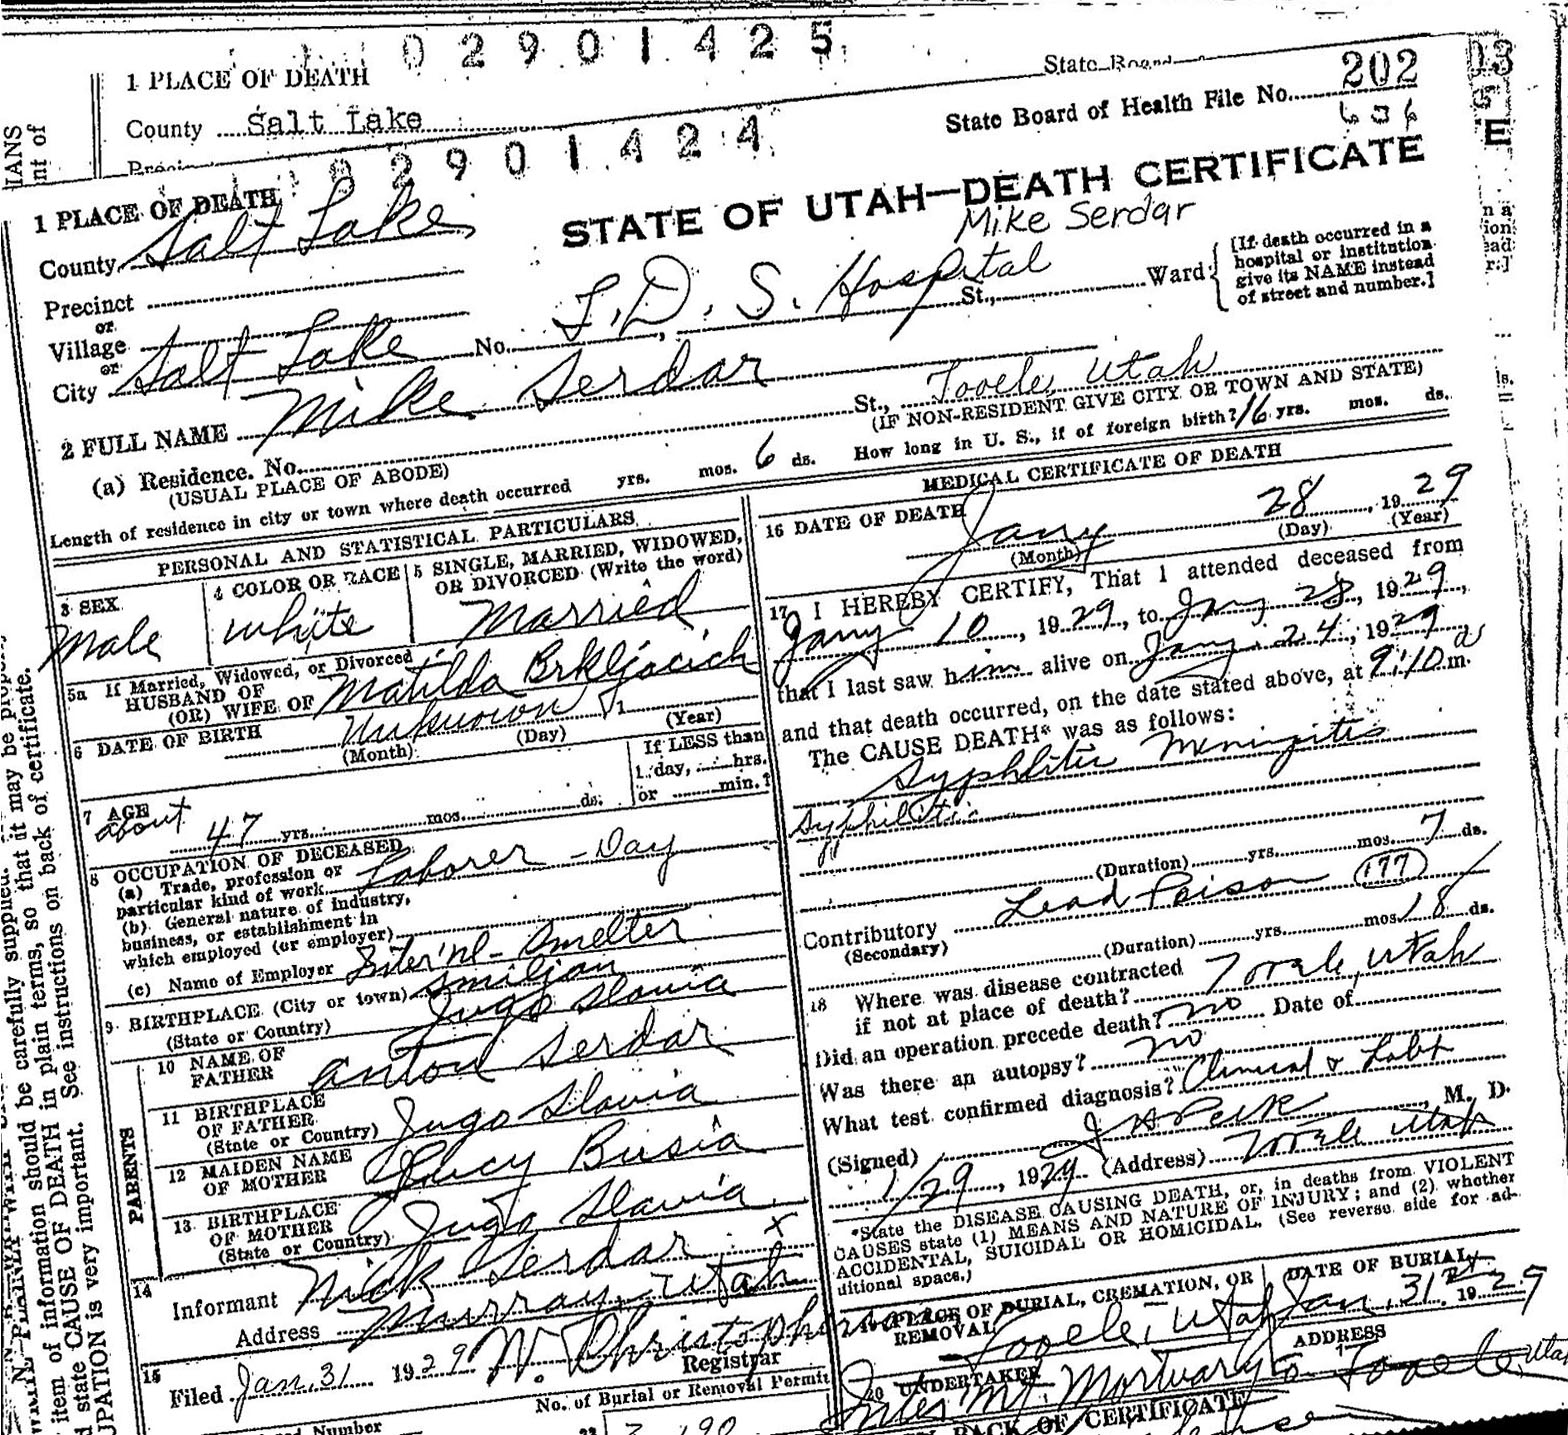 02901425
1 PLACE OF DEATH
State Board
County Salt Lake
02901424
State Board of Health File No. 202
636
1 PLACE OF DEATH
STATE OF UTAH—DEATH CERTIFICATE
County Salt Lake
Mike Serdar
Precinct
or
Village
No. L.D.S. Hospital St., Ward
[If death occurred in a hospital or institution give its NAME instead of street and number.]
or
City Salt Lake
2 FULL NAME Mike Serdar
(a) Residence. No. St., Tooele, Utah
(USUAL PLACE OF ABODE)
(IF NON-RESIDENT GIVE CITY OR TOWN AND STATE)
Length of residence in city or town where death occurred yrs. mos. 6 ds. How long in U. S., if of foreign birth? 16 yrs. mos. ds.
PERSONAL AND STATISTICAL PARTICULARS
3 SEX
Male
4 COLOR OR RACE
White
5 SINGLE, MARRIED, WIDOWED, OR DIVORCED (Write the word)
Married
5a If Married, Widowed, or Divorced
HUSBAND OF
(OR) WIFE OF Matilda Brkljacich
6 DATE OF BIRTH Unknown 1
(Month) (Day) (Year)
7 AGE
about 47 yrs. mos. ds.
If LESS than
1 day, hrs.
or min.?
8 OCCUPATION OF DECEASED
(a) Trade, profession or
particular kind of work Laborer - Day
(b) General nature of industry,
business, or establishment in
which employed (or employer)
(c) Name of Employer Inter'nl- Smelter
9 BIRTHPLACE (City or town) Smiljan
(State or Country) Jugo Slavia
PARENTS
10 NAME OF
FATHER Anton Serdar
11 BIRTHPLACE
OF FATHER
(State or Country) Jugo Slavia
12 MAIDEN NAME
OF MOTHER Lucy Busia
13 BIRTHPLACE
OF MOTHER
(State or Country) Jugo Slavia
14
Informant Nick Serdar x
Address Murray, Utah
15
Filed Jan. 31 1929 W. Christopherson
Registrar
No. of Burial or Removal Permit
MEDICAL CERTIFICATE OF DEATH
16 DATE OF DEATH Jany 28, 1929
(Month) (Day) (Year)
17 I HEREBY CERTIFY, That I attended deceased from
Jany 10, 1929, to Jany 28, 1929,
that I last saw him alive on Jany. 24, 1929
and that death occurred, on the date stated above, at 9:10 a m.
The CAUSE DEATH* was as follows:
Syphlitic Meningitis
Syphilitic
"
(Duration) yrs. mos. 7 ds.
Contributory Lead Poison (177)
(Secondary)
(Duration) yrs. mos. 18 ds.
18 Where was disease contracted
if not at place of death? Tooele, Utah
Did an operation precede death? no Date of
Was there an autopsy? no
What test confirmed diagnosis? Clinical & Labt
(Signed) J H Peck, M. D.
1/29, 1929 (Address) Tooele Utah
*State the DISEASE CAUSING DEATH, or, in deaths from VIOLENT
CAUSES state (1) MEANS AND NATURE OF INJURY; and (2) whether
ACCIDENTAL, SUICIDAL OR HOMICIDAL. (See reverse side for additional space.)
19 PLACE OF BURIAL, CREMATION, OR
REMOVAL Tooele, Utah
DATE OF BURIAL
Jan. 31st 1929
20 UNDERTAKER
Inter Mt. Mortuary Co.
ADDRESS
Tooele, Utah
BACK OF CERTIFICATE
item of information should be carefully supplied.
state CAUSE OF DEATH in plain terms, so that it may be properly
See instructions on back of certificate.
UPATION is very important.